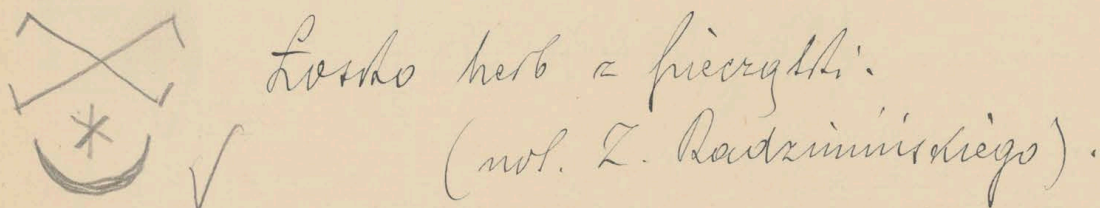 Łoszko herb z pieczątki.
(not. Z. Radzimińskiego).